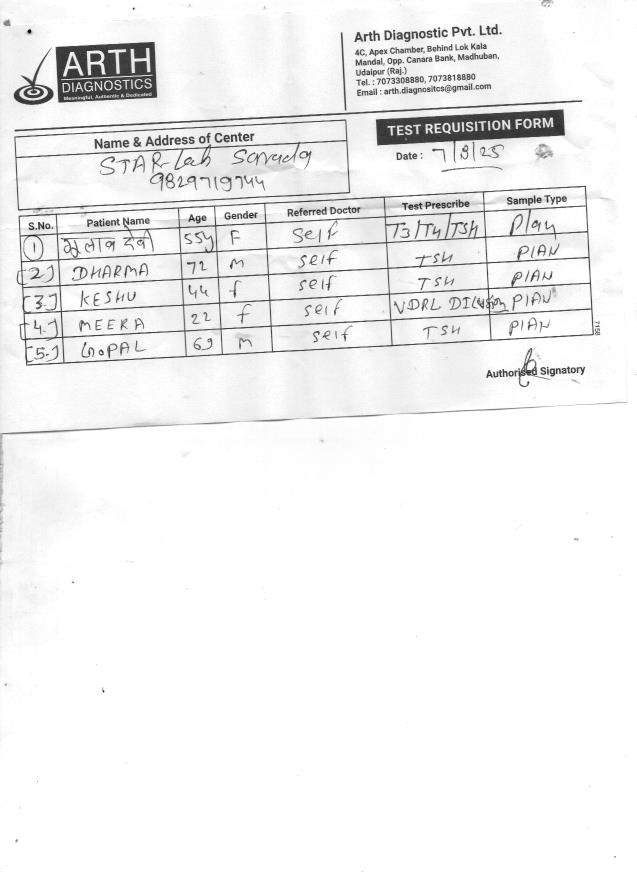 ARTH
DIAGNOSTICS
Meaningful, Authentic & Dedicated
Arth Diagnostic Pvt. Ltd.
4C, Apex Chamber, Behind Lok Kala
Mandal, Opp. Canara Bank, Madhuban,
Udaipur (Raj.)
Tel. : 7073308880, 7073818880
Email : arth.diagnositcs@gmail.com
Name & Address of Center
STAR Lab
9829719744
TEST REQUISITION FORM
Date : 7/8/25
S.No. Patient Name Age Gender Referred Doctor Test Prescribe Sample Type
1 गुलाब देवी 55y F Self T3/T4/TSH Plan
[2.] DHARMA 72 M Self TSH PIAN
[3.] KESHU 44 f Self TSH PIAN
[4.] MEERA 22 f Self VDRL PIAN
[5.] GOPAL 69 M Self TSH PIAN
7158
Authorised Signatory